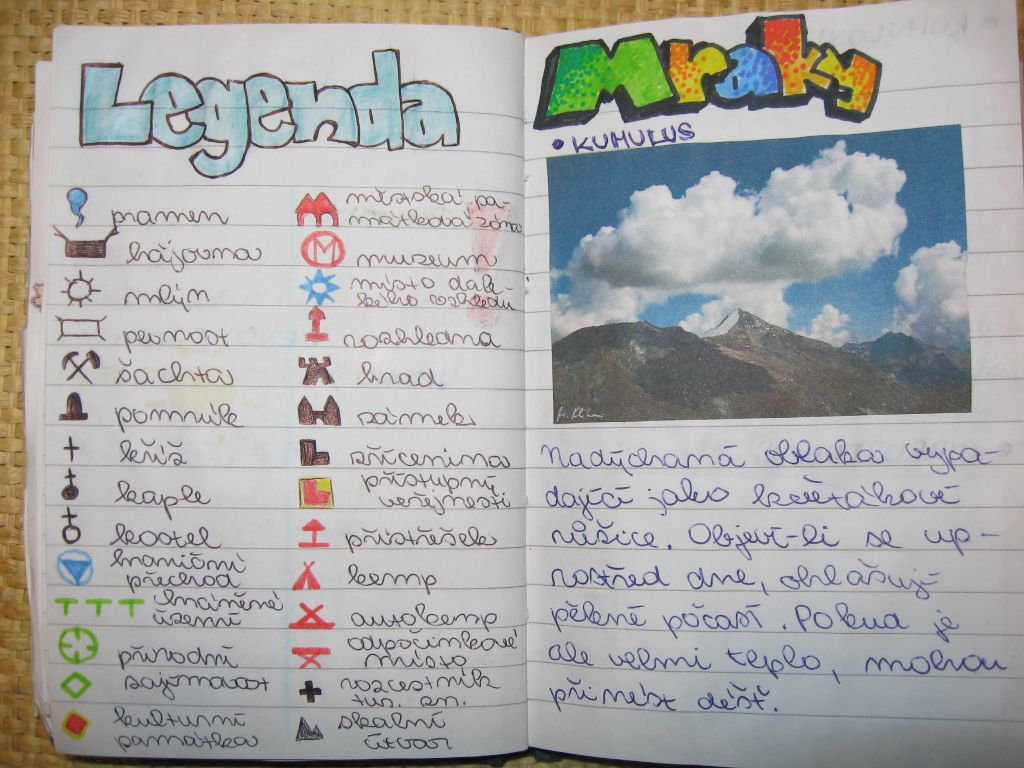 Legenda
pramen
hájovna
mlýn
pevnost
šachta
pomník
kříž
kaple
kostel
hraniční
přechod
chráněné
území
přírodní
zajímavost
kulturní
památka
městská pa-
mátková zóna
M muzeum
místo dale-
kého rozhledu
rozhledna
hrad
zámek
zřícenina
přístupný
veřejnosti
přístřešek
kemp
autokemp
odpočinkové
místo
rozcestník
tur. zn.
skalní
útvar
Mraky
• KUMULUS
Nadýchaná oblaka vypa-
dající jako květákové
růžice. Objeví-li se up-
rostřed dne, ohlašují
pěkné počasí. Pokud je
ale velmi teplo, mohou
přinést déšť.